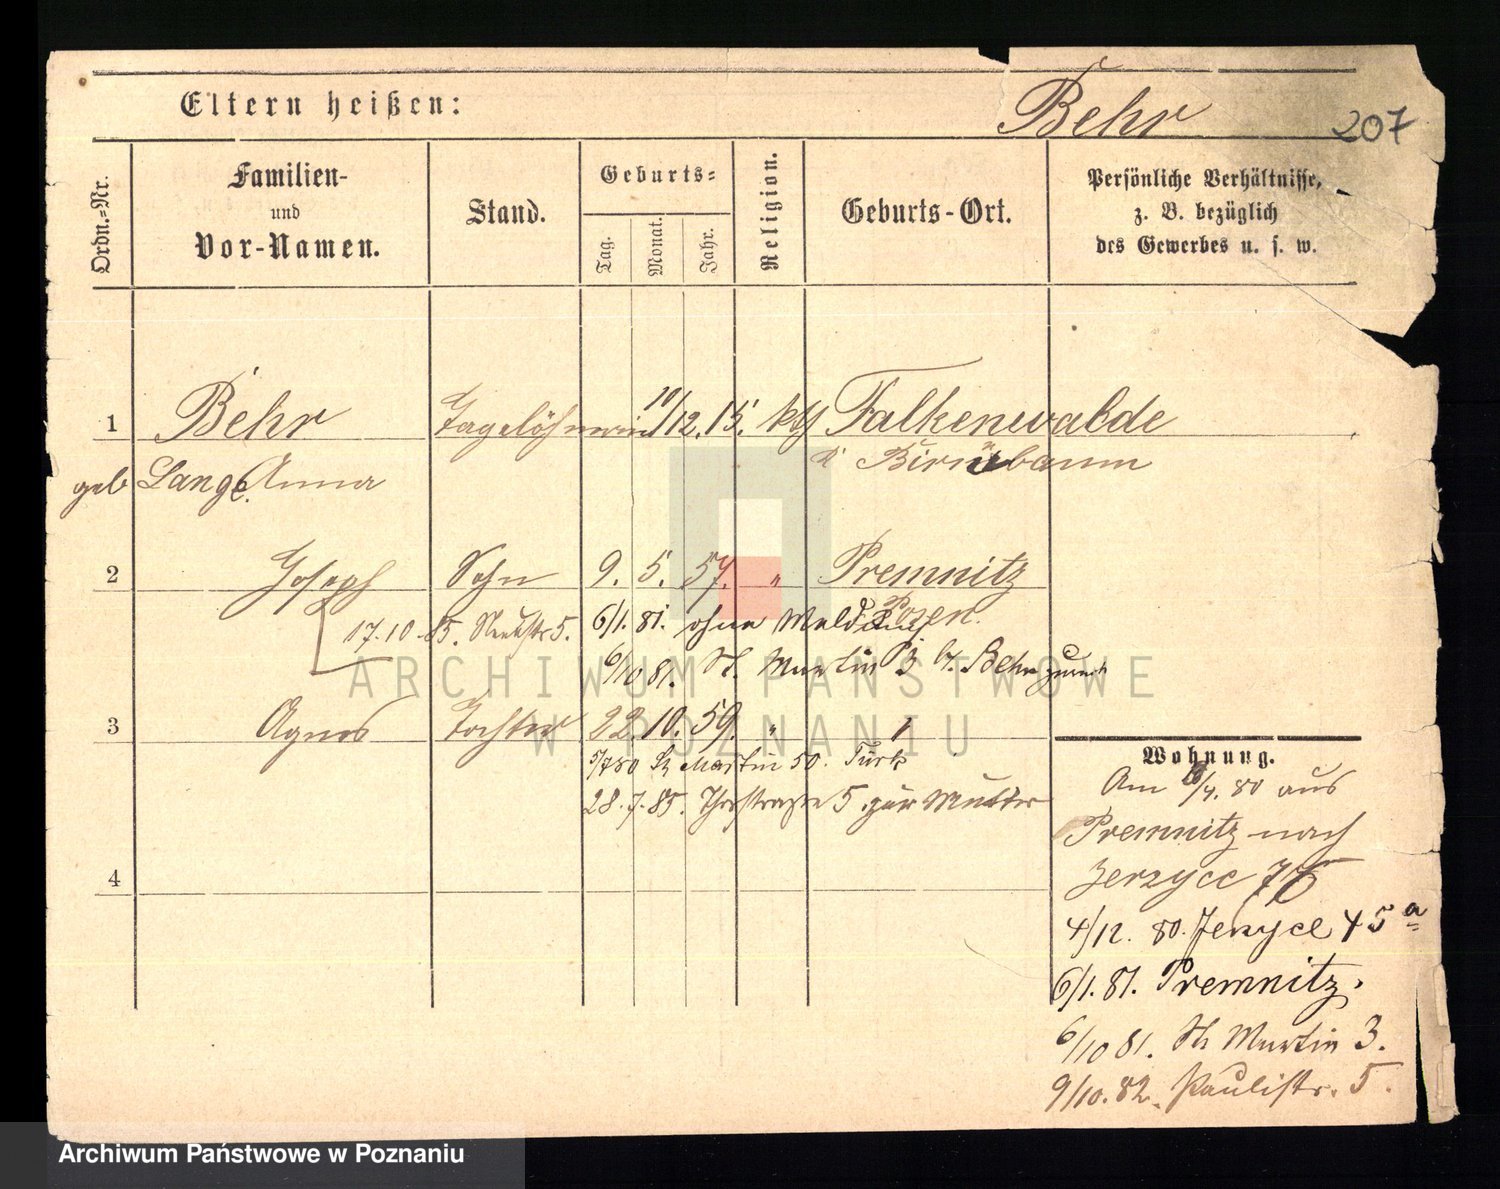 Eltern heißen:
Behr
207
Ordn.-Nr.
Familien-
und
Vor-Namen.
Stand.
Geburts-
Tag.
Monat.
Jahr.
Religion.
Geburts-Ort.
Persönliche Verhältnisse,
z. B. bezüglich
des Gewerbes u. s. w.
1 Behr Tagelöhnerin 10/12. 15. kth Falkenwalde
geb Lange Anna Birnbaum
2 Joseph Sohn 9. 5. 57. " Premnitz
Posen.
17.10.85. 5. 6/1. 81. ohne Meldung
6/10 81. St. Martin 3 b. Behr zurück
3 Agnes Tochter 22. 10. 59. " "
5/7 80 St Martin 50. Türk
28.7.85. 5 zur Mutter
4
Wohnung.
Am /4. 80 aus
Premnitz nach
Jerzyce
4/12. 80. Jerzyce 45a
6/1. 81. Premnitz.
6/10 81. St Martin 3.
9/10. 82. Paulistr. 5.
ARCHIWUM PAŃSTWOWE
W POZNANIU
Archiwum Państwowe w Poznaniu